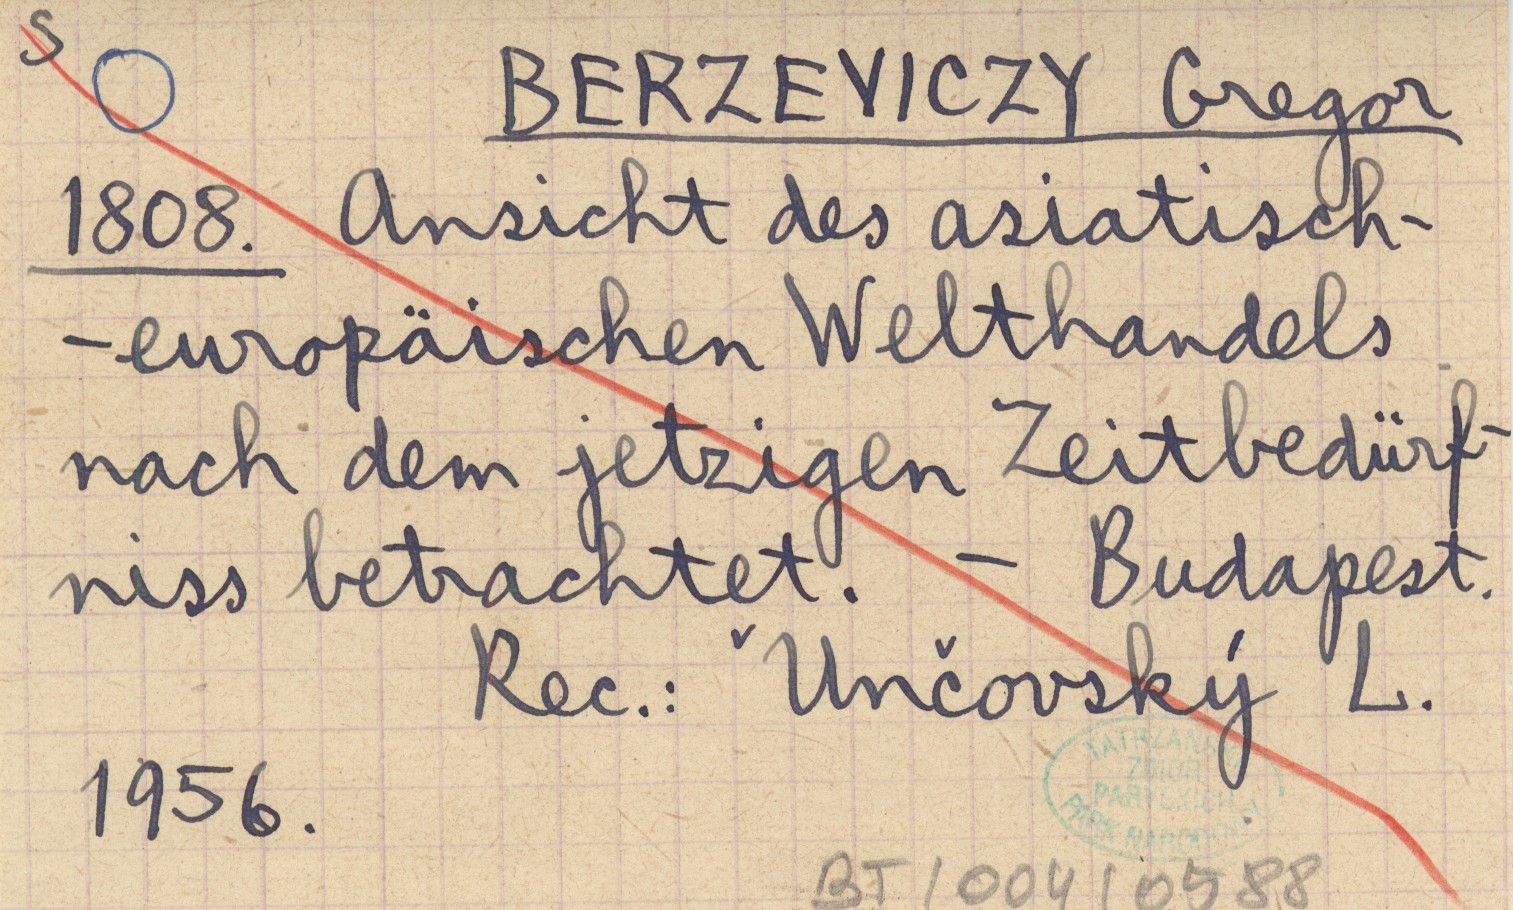 S
BERZEVICZY Gregor
1808. Ansicht des asiatisch-
-europäischen Welthandels
nach dem jetzigen Zeitbedürf-
niss betrachtet. - Budapest.
Rec.: ˇUnčovský L.
1956.
TATRZAŃSKI
ZBIÓR
PARYSKICH
PARK NARODOWY
BT/004/0588